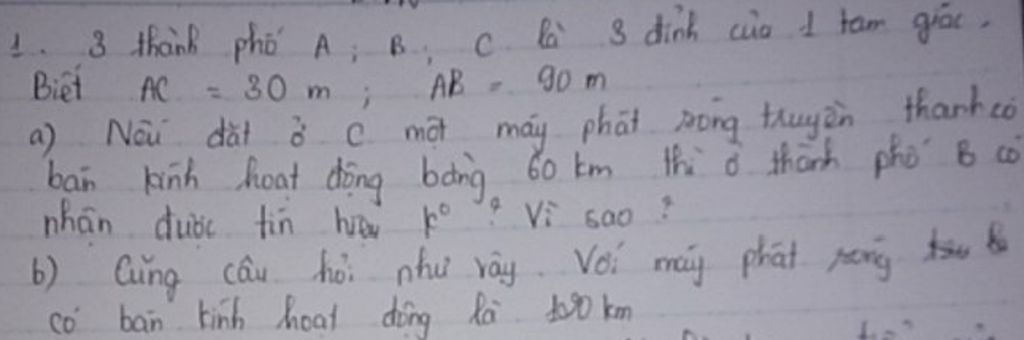 1. 3 thành phố A ; B ; C là 3 đỉnh của 1 tam giác.
Biết AC = 30 m ; AB = 90 m
a) Nếu đặt ở C một máy phát sóng truyền thanh có
bán kính hoạt động bằng 60 km thì ở thành phố B có
nhận được tín hiệu k° ? Vì sao ?
b) Cũng câu hỏi như vậy. Với máy phát sóng
có bán kính hoạt động là km